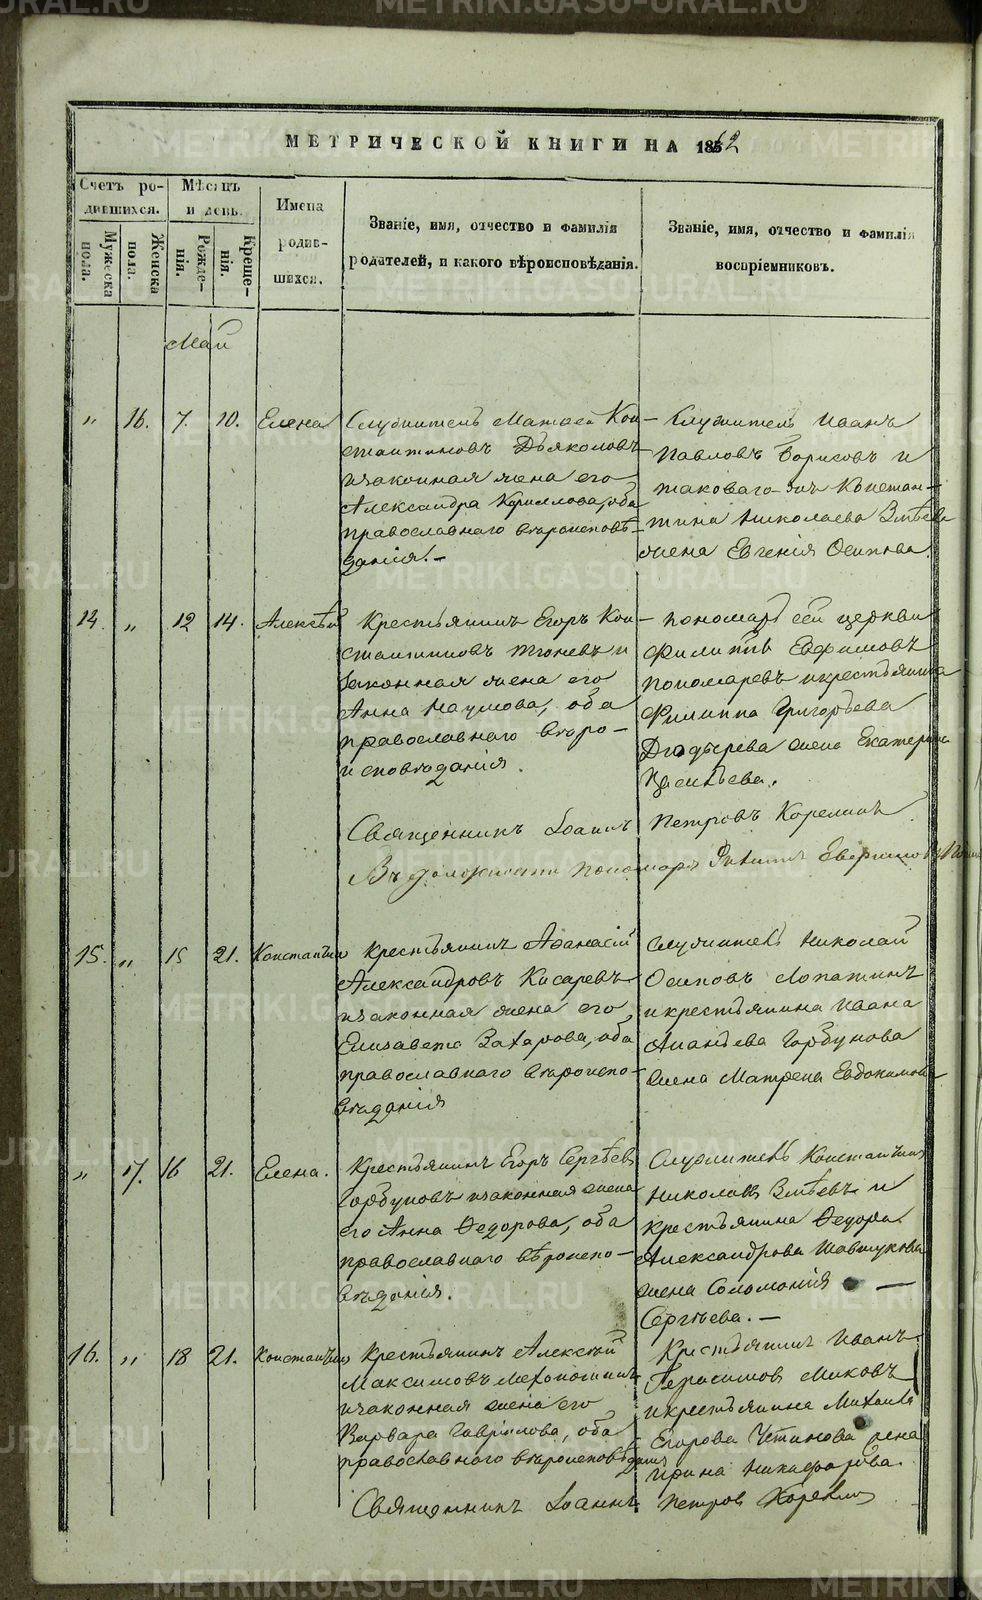 МЕТРИЧЕСКОЙ КНИГИ НА 1862
Счетъ родившихся.
Мѣсяцъ и день.
Имена родившихся.
Званіе, имя, отчество и фамилія
родителей, и какого вѣроисповѣданія.
Званіе, имя, отчество и фамилія
воспріемниковъ.
Мужеска пола.
Женска пола.
Рожденія.
Крещенія.
Май
" 16. 7. 10. Елена
Служитель Матвей Кон-
стантиновъ Дьяконовъ
и законная жена его
Александра Кириллова, оба
православнаго вѣроисповѣ-
данія.-
Служитель Иванъ
Павловъ Борисовъ и
таковаго-же Констан-
тина Николаева Змѣева
жена Евгенія Осипова.
14. " 12 14. Алексѣй
Крестьянинъ Егоръ Кон-
стантиновъ Тюневъ и
законная жена его
Анна Наумова, оба
православнаго вѣро-
исповѣданія.
Пономарь сей церкви
Филиппъ Евфимовъ
Пономаревъ и крестьянина
Филиппа Григорьева
жена Екатерина
Васильева.
Священникъ Іоаннъ Петровъ Корелинъ
Въ должности пономаря
15. " 15 21. Константинъ
Крестьянинъ Афанасій
Александровъ Кисаревъ
и законная жена его
Елизавета Захарова, оба
православнаго вѣроиспо-
вѣданія
Служитель Николай
Осиповъ Лопатинъ
и крестьянина Ивана
Ананьева Горбунова
жена Матрена Евдокимова
" 17. 16 21. Елена.
Крестьянинъ Егоръ Сергѣевъ
Горбуновъ и законная жена
его Анна Ѳедорова, оба
православнаго вѣроиспо-
вѣданія.
Служитель Константинъ
Николаевъ Змѣевъ и
крестьянина Ѳедора
Александрова
жена Соломонія
Сергѣева.-
16. " 18 21. Константинъ
Крестьянинъ Алексѣй
Максимовъ Мехоношинъ
и законная жена его
Варвара Гаврилова, оба
православнаго вѣроисповѣданія
Крестьянинъ Иванъ
Герасимовъ Миковъ
и крестьянина Михаила
Егорова Устинова жена
Ирина Никифорова.
Священникъ Іоаннъ Петровъ Корелинъ
METRIKI.GASO-URAL.RU